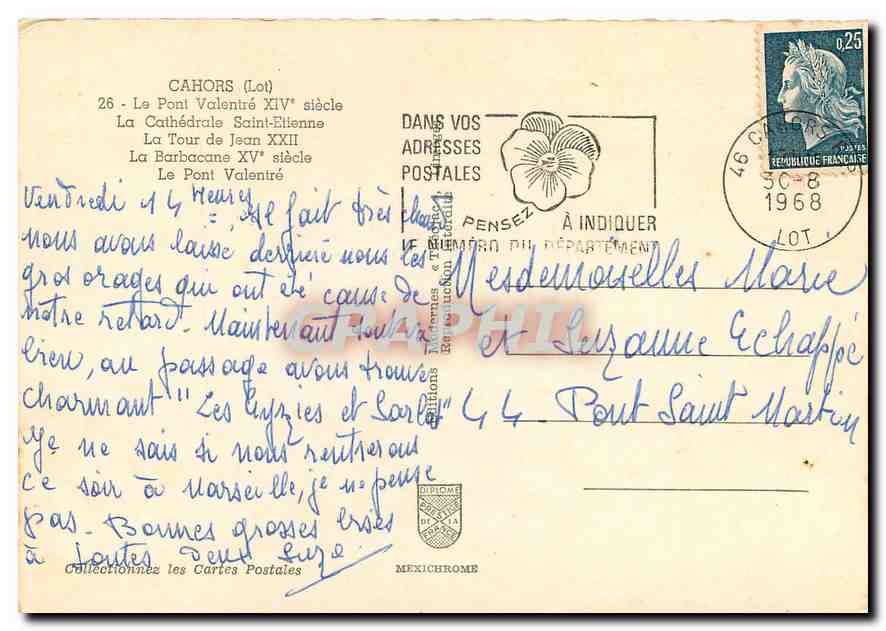 CAHORS (Lot)
26 - Le Pont Valentré XIVe siècle
La Cathédrale Saint-Etienne
La Tour de Jean XXII
La Barbacane XVe siècle
Le Pont Valentré
DANS VOS
ADRESSES
POSTALES
PENSEZ
À INDIQUER
LE NUMÉRO DU DÉPARTEMENT
0,25
POSTES
REPUBLIQUE FRANÇAISE
46 CAHORS
30-8
1968
LOT
Vendredi 14 Heures
= Il fait très chaud
nous avons laissé derrière nous les
gros orages qui ont été cause de
notre retard. Maintenant tout va
bien, au passage avons trouvé
charmant "Les Eyzies et Sarlat"
Je ne sais si nous rentrerons
ce soir à Marseille, je ne pense
pas. Bonnes grosses bises
à toutes deux Suze
Mesdemoiselles Marie
et Suzanne Echappé
44 - Pont Saint Martin
Editions Modernes
Reproduction Interdite
CPAPHIL
DIPLOME
PRESTIGE
DE LA
FRANCE
Collectionnez les Cartes Postales
MEXICHROME